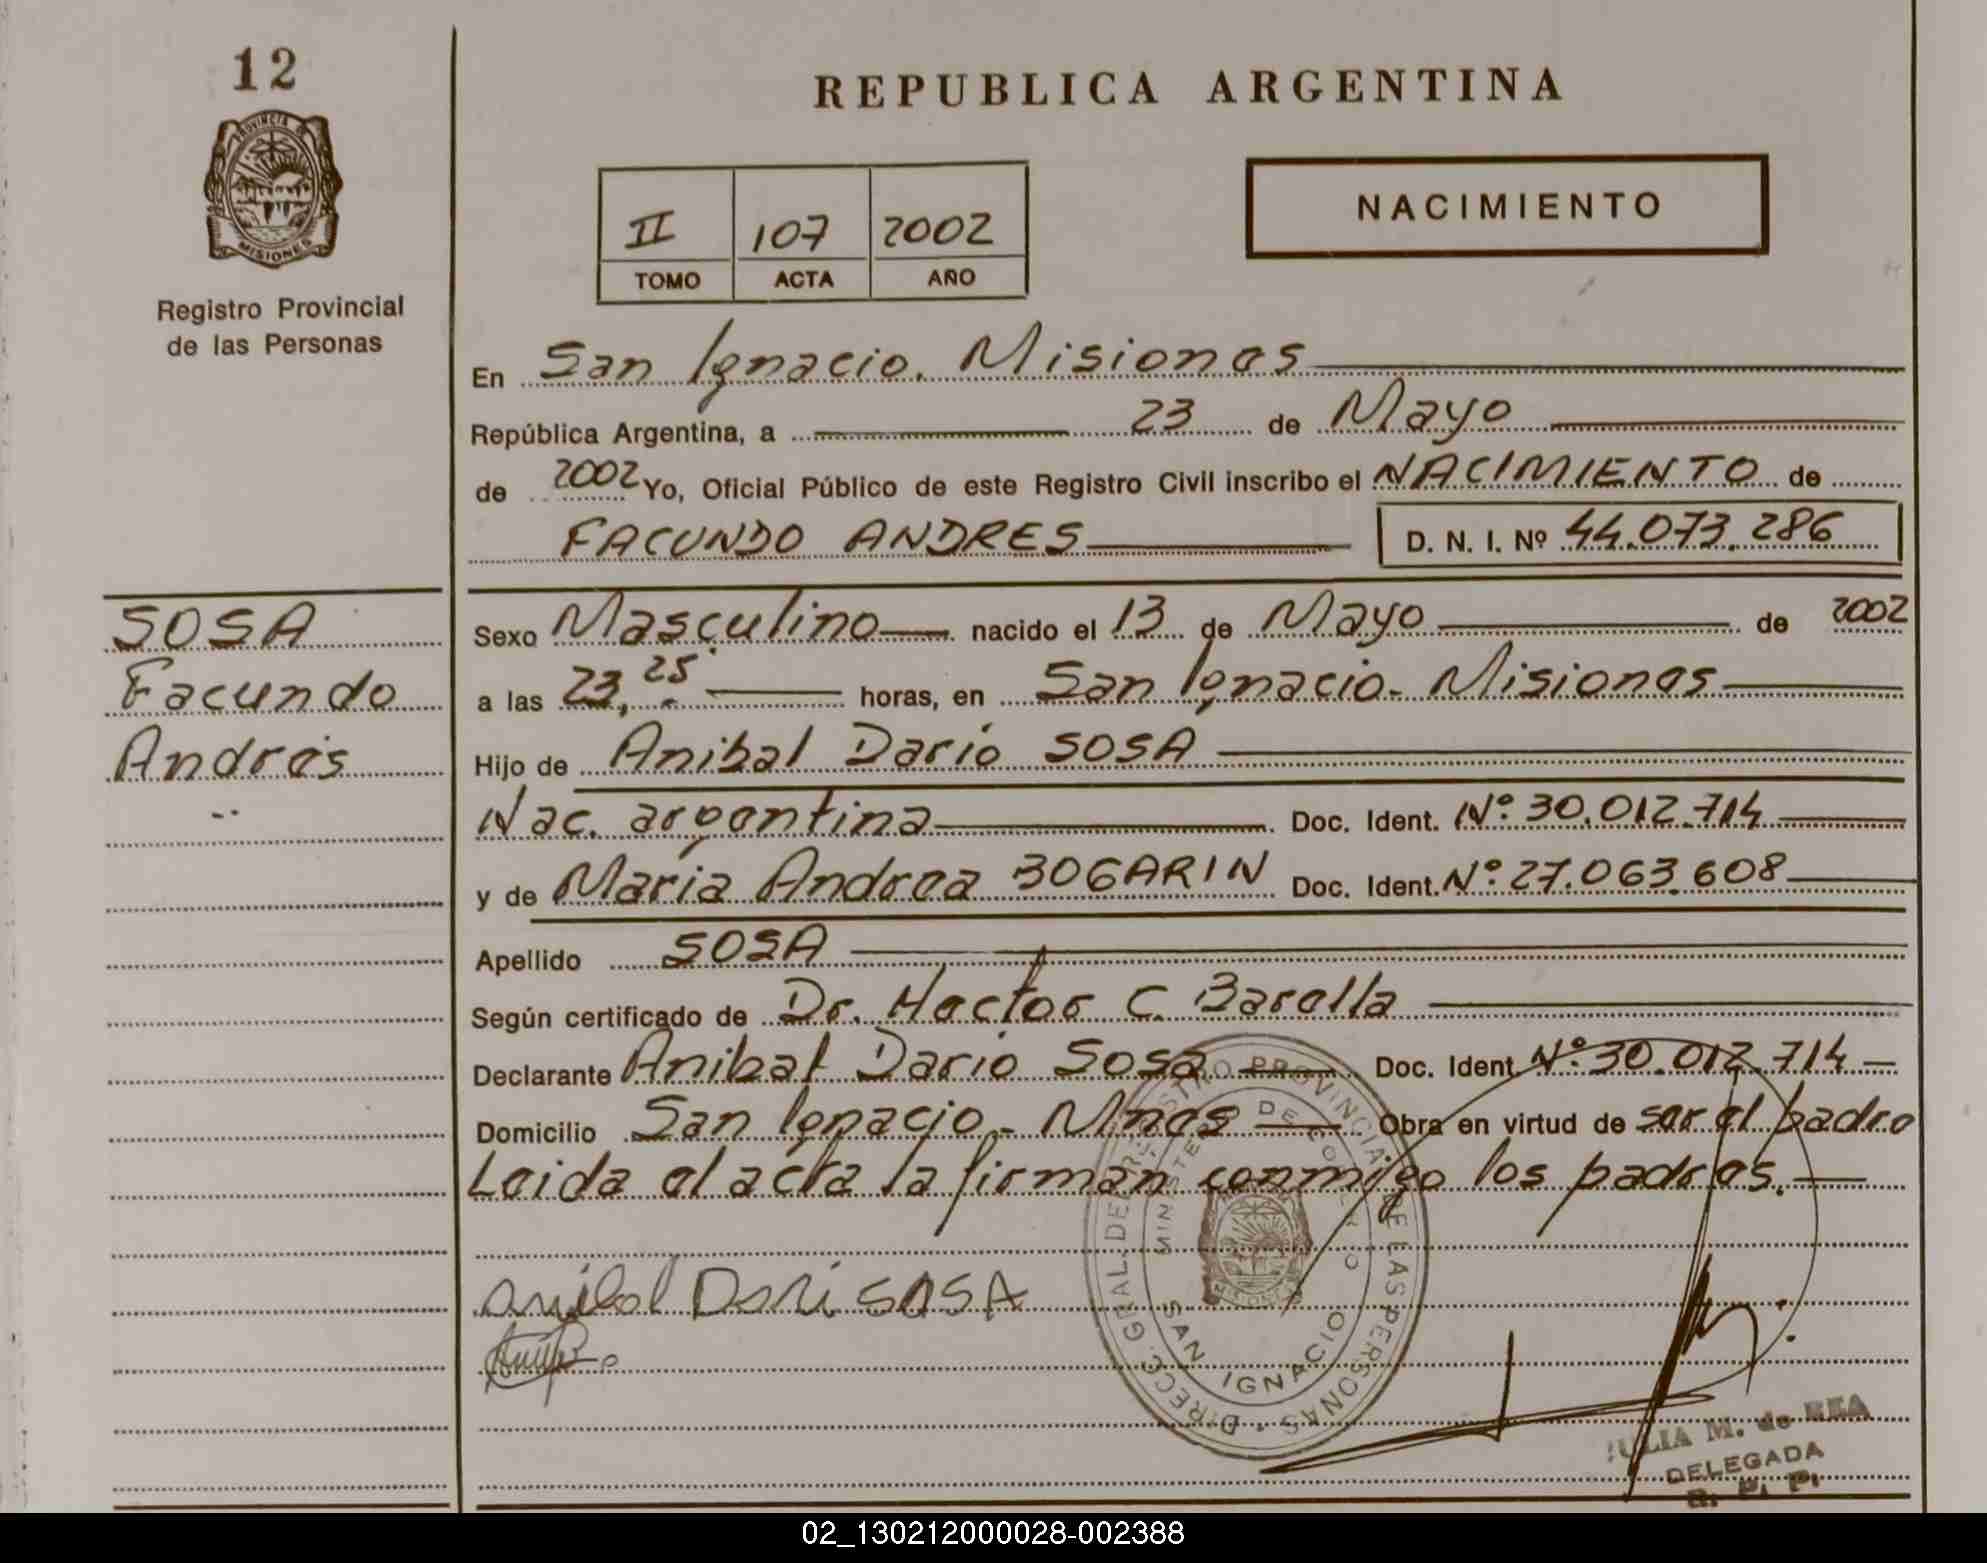 12
PROVINCIA DE
MISIONES
Registro Provincial
de las Personas
REPUBLICA ARGENTINA
II 107 2002
TOMO ACTA AÑO
NACIMIENTO
En San Ignacio. Misiones
República Argentina, a 23 de Mayo
de 2002 Yo, Oficial Público de este Registro Civil inscribo el NACIMIENTO de
FACUNDO ANDRES D. N. I. Nº 44.073.286
SOSA
Facundo
Andrés
Sexo Masculino nacido el 13 de Mayo de 2002
a las 23,25 horas, en San Ignacio- Misiones
Hijo de Anibal Darío SOSA
Nac. argentina Doc. Ident. Nº: 30.012.714
y de María Andrea BOGARIN Doc. Ident. Nº: 27.063.608
Apellido SOSA
Según certificado de Dr. Hector C. Barella
Declarante Anibal Darío Sosa Doc. Ident. Nº: 30.012.714
Domicilio San Ignacio - Mnes Obra en virtud de ser el padre
Leida el acta la firman conmigo los padres.
Anibal Dari SOSA
DIRECC. GRAL. DEL REGISTRO PROVINCIAL DE LAS PERSONAS
SAN IGNACIO
MISIONES
JULIA M. de REA
DELEGADA
R. P. P.
02_130212000028-002388